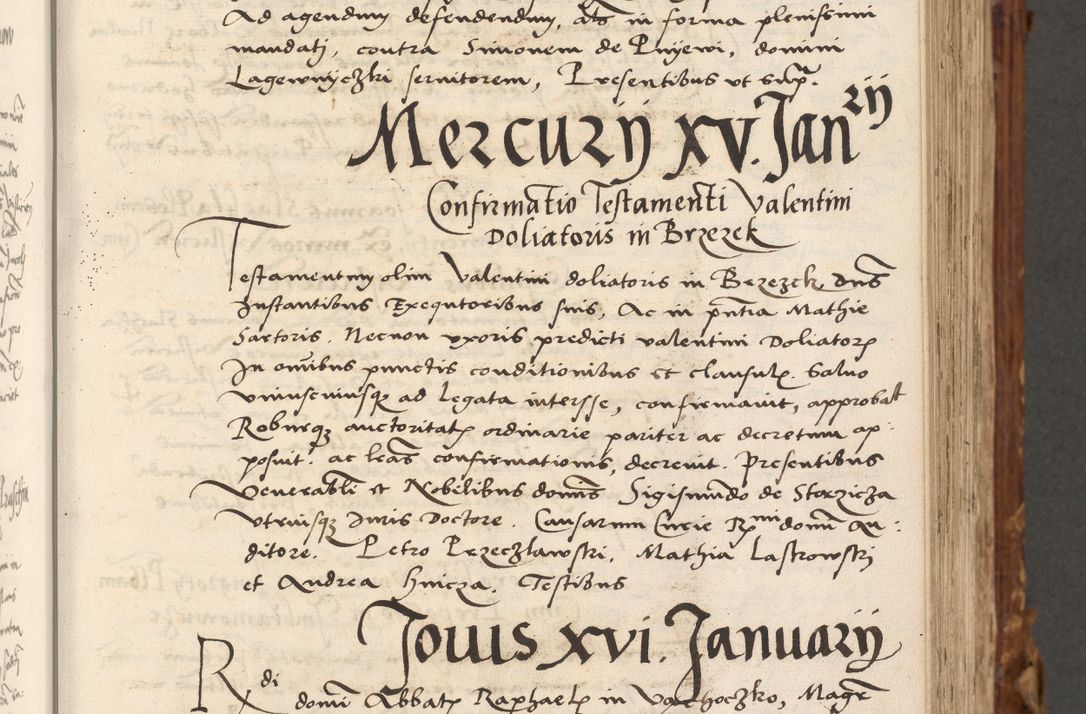 Ad agendum defendendum, ats in forma plenissimi
mandati, contra Simonem de Pnijewi, domini
Lagewnyczki servitorem, Presentibus ut sup.
Mercurij XV. Janrij
Confirmatio Testamenti Valentini
Doliatoris in Brzezek
Testamentum olim Valentini doliatoris in Brzezek, dns
Instantibus Exequtoribus suis, Ac in pntia Mathie
Sartoris. Necnon uxoris predicti valentini Doliatoris
In omibus punctis conditionibus et clausulis. Salvo
uniuscuiusq ad Legata interesse, confirmavit, approbat
Roburq auctoritatis ordinarie pariter ac decretum ap-
posuit. ac leas confirmationis, decrevit. Presentibus
Venerabli et Nobilibus domis Sigismundo de Starzicza
Utriusq Iuris Doctore. Causarum Curie Rmi domi Au:
ditore. Petro Przeczlawski, Mathia Lastrowskj
et Andrea Hnicza. Testibus
Jovis XVI. Januarij
Rdi domi Abbatis Raphaelis in Wachoczko, Magro